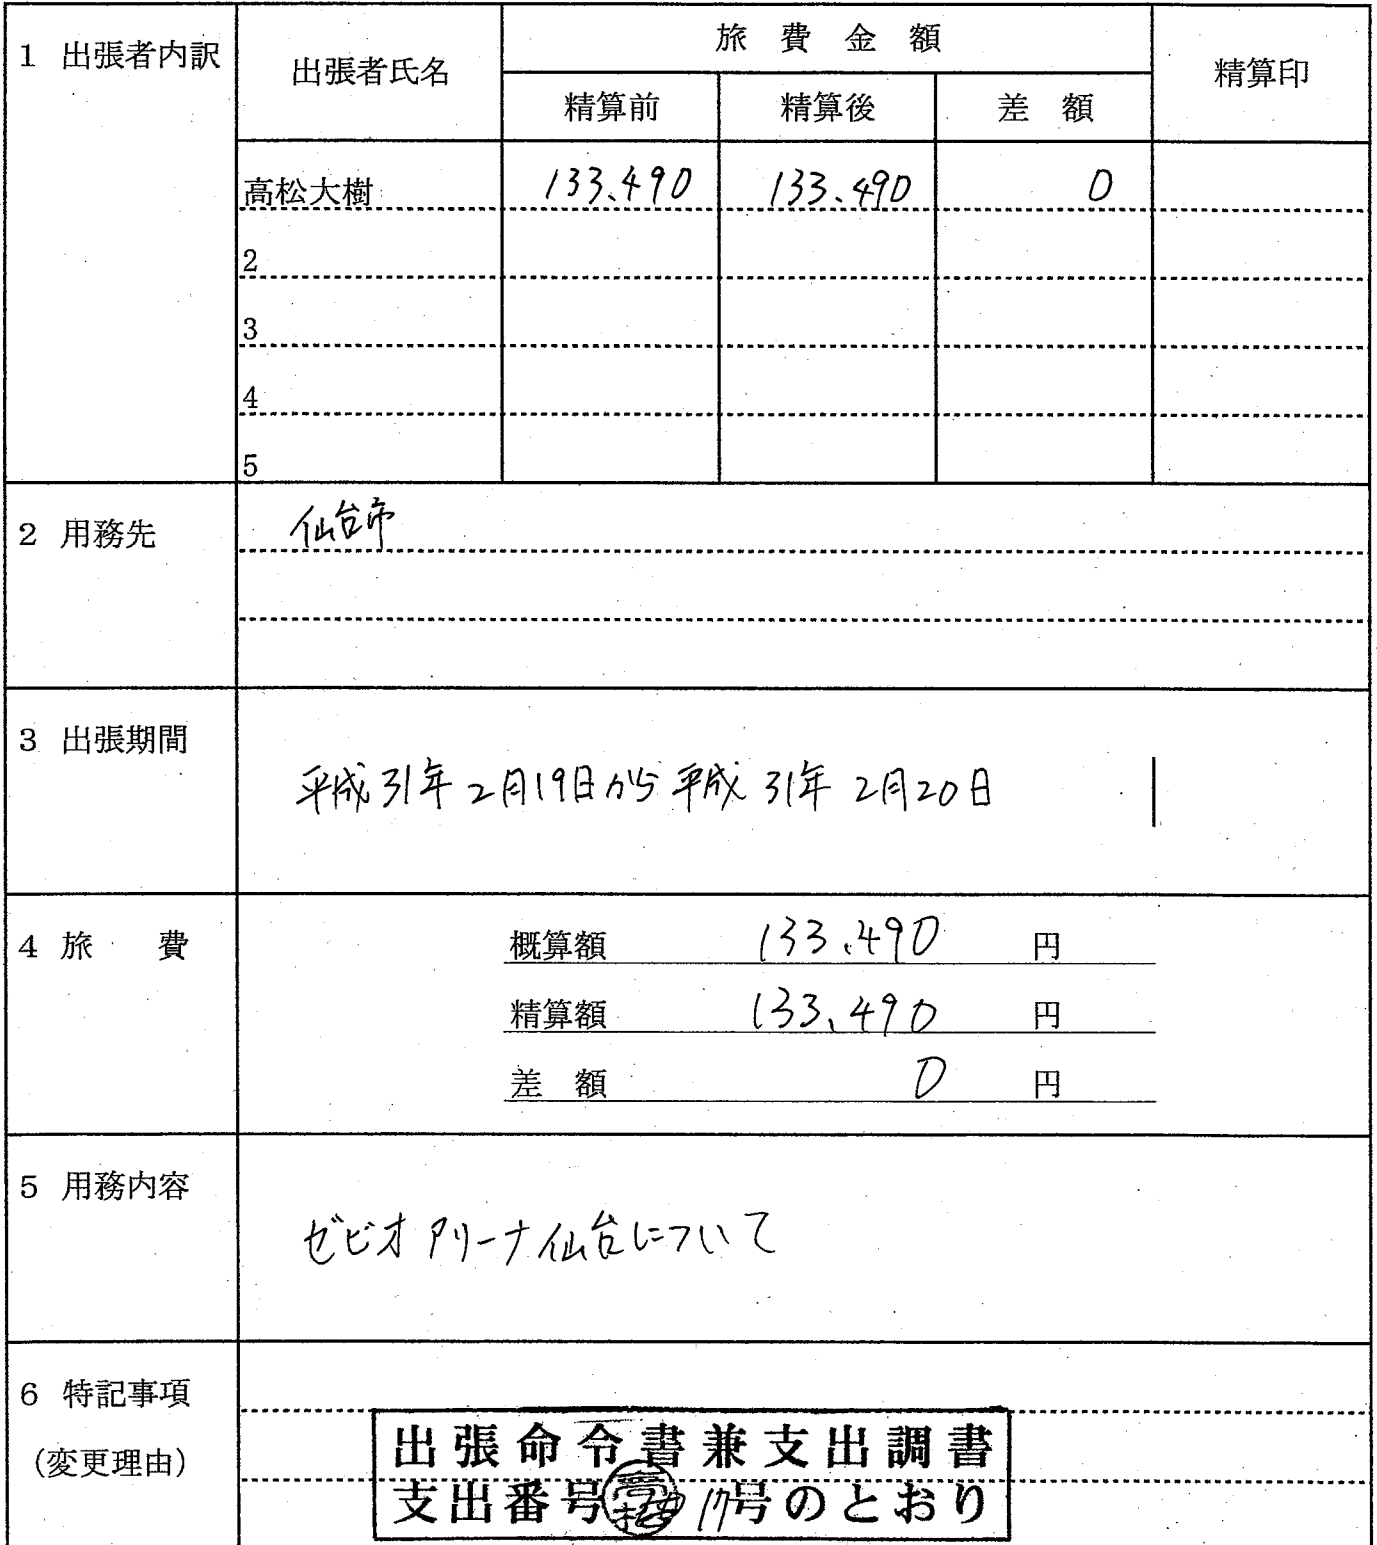 1 出張者内訳
出張者氏名
旅 費 金 額
精算印
精算前 精算後 差 額
高松大樹 133,490 133,490 0
2
3
4
5
2 用務先 仙台市
3 出張期間
平成31年2月19日から平成31年2月20日
4 旅 費 概算額 133,490 円
精算額 133,490 円
差 額 0 円
5 用務内容
ゼビオアリーナ仙台について
6 特記事項
(変更理由)
出張命令書兼支出調書
支出番号 17号のとおり
高松